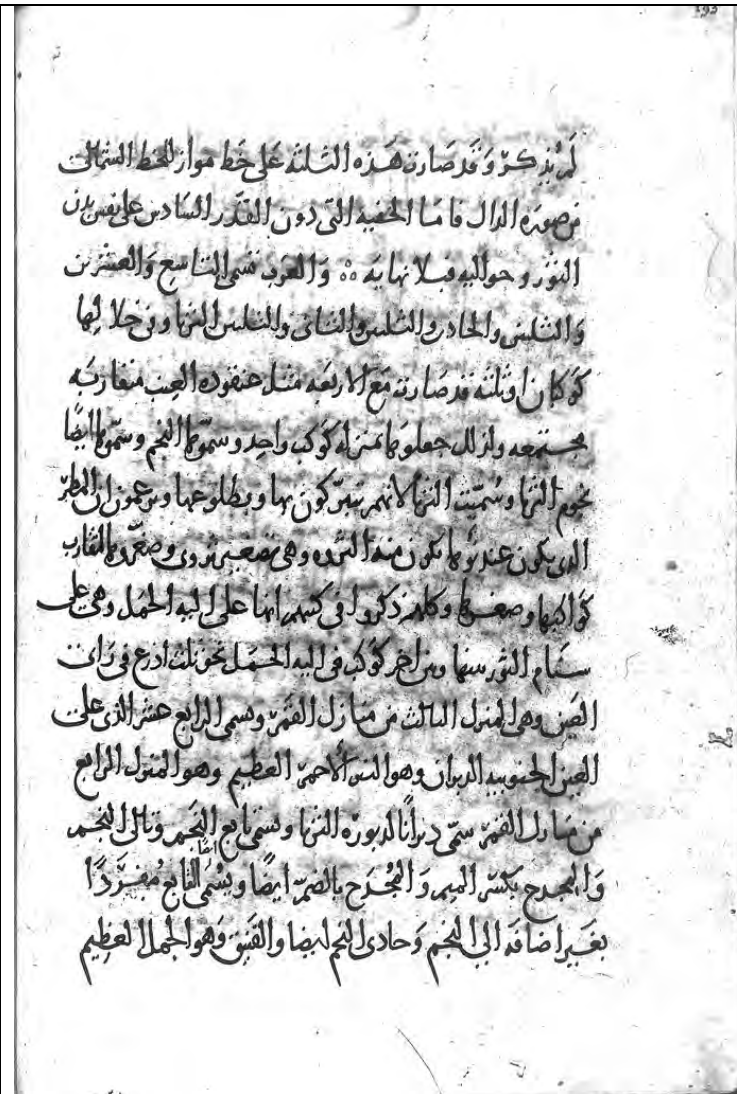 لم يذكر وقد صارت هذه الثلثة على خط مواز للخط الشمالي
من صورة الدال فاما الخفيه التي دون القدر السادس على نفس بدن
الثور وحواليه فبلا نهايه ٥٥ والعرب تسمى التاسع والعشرين
والثلثين والحادي والثلثين والثاني والثلثين الثريا وفي خلالها
كوكبان او ثلثه قد صارت مع الاربعه مثل عنقود العنب متقاربه
مجتمعه ولذلك جعلوها بمنزله كوكب واحد وسموها النجم وسموها ايضا
نجوم الثريا وسميت الثريا لانهم يتبركون بها وبطلوعها ويزعمون ان المطر
الذي يكون عند نوها يكون منه الثروه وهي تصغير ثروى وصغروها لتقارب
كواكبها وصغرها وكلهم ذكروا في كتبهم انها على اليه الحمل وهي على
سنام الثور بينها وبين اخر كوكب في اليه الحمل نحو ثلث اذرع في راى
العين وهي المنزل الثالث من منازل القمر ويسمى الرابع عشر الذي على
العين الجنوبيه الدبران وهو النير الأحمر العظيم وهو المنزل الرابع
من منازل القمر سمى دبرانا لدبوره الثريا ويسمى تابع النجم وتالى النجم
والمجدح بكسر الميم والمجدح بالضم ايضا ويسمى ايضا التابع مفردا
بغير اضافه الى النجم وحادى النجم ايضا والفنيق وهو الجمل العظيم